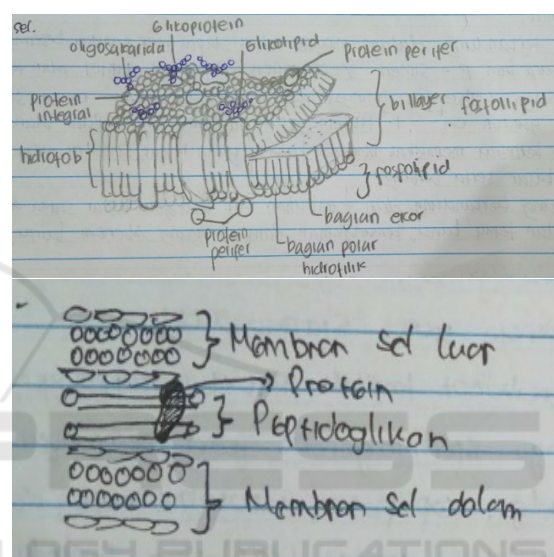 sel.
Glikoprotein
oligosakarida
Glikolipid
protein perifer
protein
integral
billayer fosfollipid
hidrofob
fospolipid
bagian ekor
protein
perifer
bagian polar
hidrofilik
Membran sel luar
Protein
Peptidoglikan
Membran sel dalam
PRESS
LOGY PUBLICATIONS